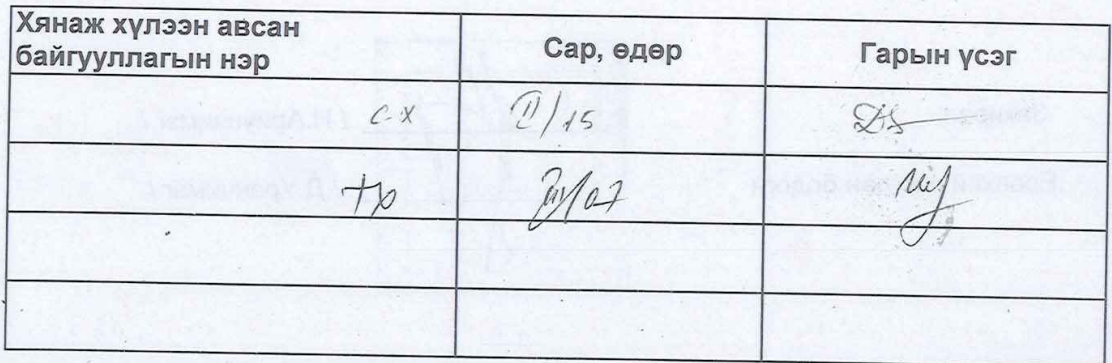 Хянаж хүлээн авсан
байгууллагын нэр
Сар, өдөр
Гарын үсэг
с-х II/15